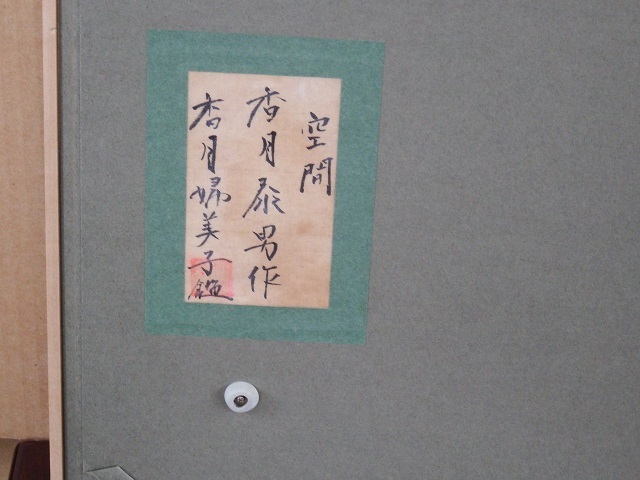 空間
香月泰男作
香月婦美子鑑